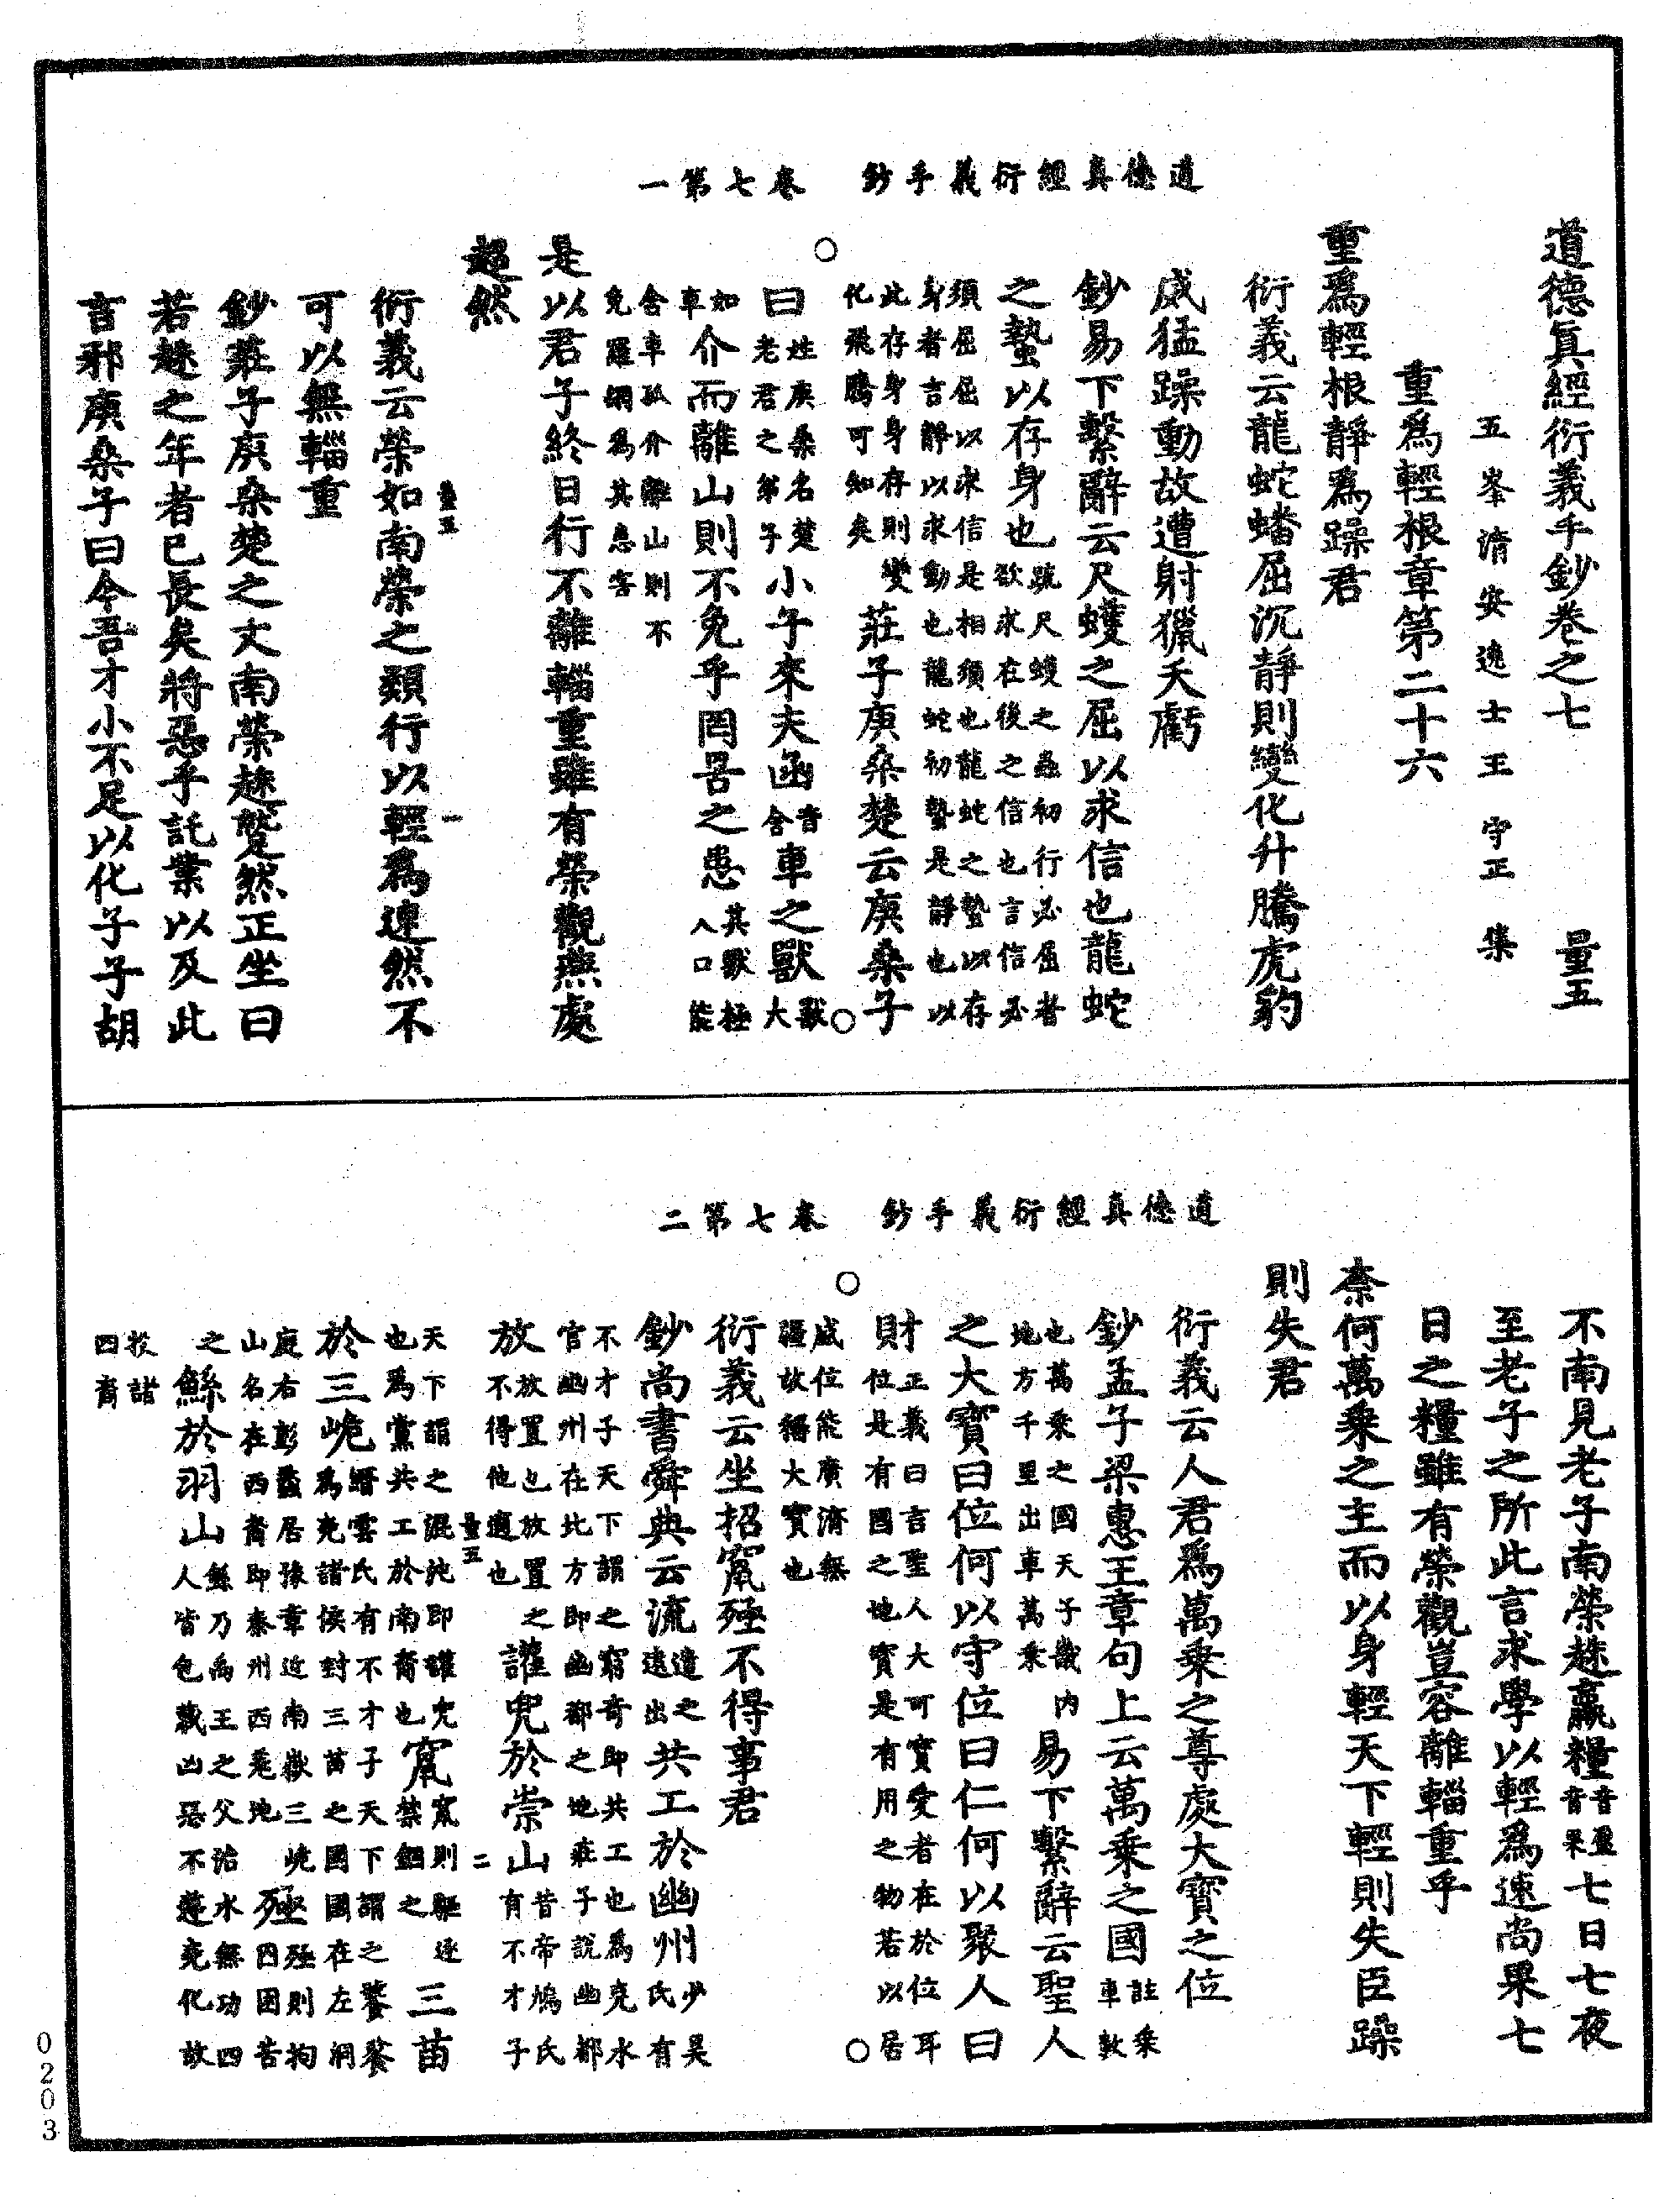 道德真經衍義手鈔 卷七第一
道德眞經衍義手鈔卷之七 量五
五峯清安逸士王守正集
重爲輕根章第二十六
重爲輕根靜爲躁君
衍義云龍蛇蟠屈沉靜則變化升騰虎豹
威猛躁動故遭射獵夭虧
鈔易下繫辭云尺蠖之屈以求信也龍蛇
之蟄以存身也疏尺蠖之蟲初行必屈者欲求在後之信也言信必
須屈屈以求信是相須也龍蛇之蟄以存身者言靜以求動也龍蛇初蟄是靜也以
此存身身存則變化飛騰可知矣莊子庚桑楚云庚桑子
曰姓庚桑名楚老君之弟子小子來夫函音含車之獸獸大
如車介而離山則不免乎罔罟之患其獸極人口能
含車孤介離山則不免羅網爲其患害
是以君子終日行不離輜重雖有榮觀燕處
超然
量五 一
衍義云榮如南榮之類行以輕爲速然不
可以無輜重
鈔莊子庚桑楚之文南榮趎蹵然正坐曰
若趎之年者已長矣將惡乎託業以及此
言邪庚桑子曰今吾才小不足以化子子胡
道德真經衍義手鈔 卷七第二
不南見老子南榮趎贏糧音盈音果七日七夜
至老子之所此言求學以輕爲速尚果七
日之糧雖有榮觀豈容離輜重乎
柰何萬乘之主而以身輕天下輕則失臣躁
則失君
衍義云人君爲萬乘之尊處大寶之位
鈔孟子梁惠王章句上云萬乘之國註乘車數
也萬乘之國天子畿內地方千里出車萬乘易下繫辭云聖人
之大寶曰位何以守位曰仁何以聚人曰
財正義曰言聖人大可寶愛者在於位耳位是有國之地寶是有用之物若以居
威位能廣濟無疆故稱大寶也
衍義云坐招竄殛不得事君
鈔尚書舜典云流遣之遠出共工於幽州少昊氏有
不才子天下謂之窮奇即共工也爲堯水官幽州在北方即幽都之地莊子說幽都
放放置也放置之不得他適也讙兜於崇山昔帝鴻氏有不才子
量五 二
天下謂之混沌即讙兜也爲黨共工於南裔也竄竄則驅逐禁錮之三苗
於三峗縉雲氏有不才子天下謂之饕餮爲堯諸侯封三苗之國國在左洞
庭右彭蠡居豫章近南嶽三峗山名在西裔即秦州西羌地殛殛則拘囚困苦
之鯀於羽山鯀乃禹王之父治水無功四人皆包藏凶惡不遵堯化故
投諸四裔
0203